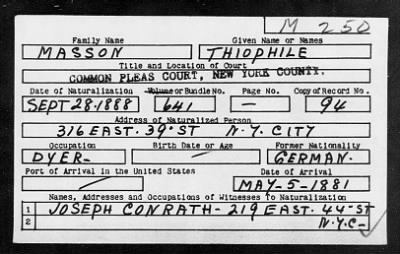 M 250
Family Name Given Name or Names
MASSON THIOPHILE
Title and Location of Court
COMMON PLEAS COURT, NEW YORK COUNTY.
Date of Naturalization Volume or Bundle No. Page No. Copy of Record No.
SEPT 28-1888 641 — 94
Address of Naturalized Person
316 EAST. 39th ST N.Y. CITY
Occupation Birth Date or Age Former Nationality
DYER- GERMAN.
Port of Arrival in the United States Date of Arrival
MAY-5-1881
Names, Addresses and Occupations of Witnesses To Naturalization
1 JOSEPH CONRATH- 219 EAST. 44th ST
2 N.Y.C-